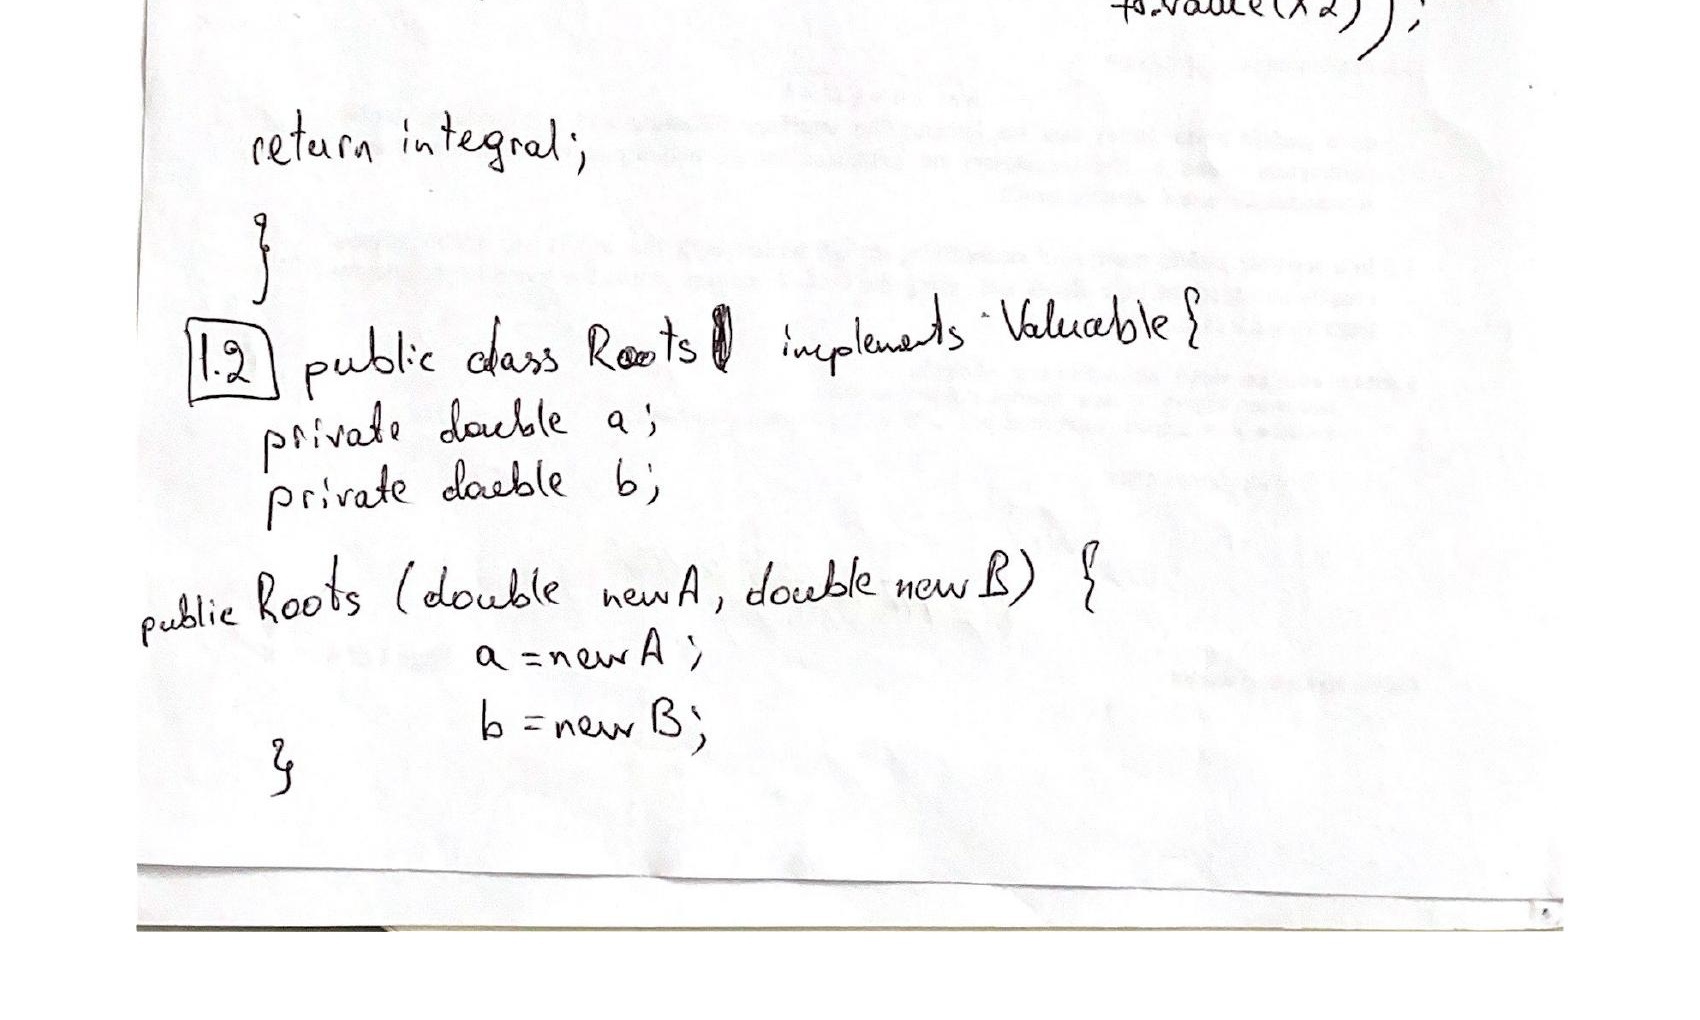 fs.value(x2));
return integral;
}
1.2 public class Roots implements Valuable {
private double a;
private double b;
public Roots (double newA, double newB) {
a = newA;
b = newB;
}